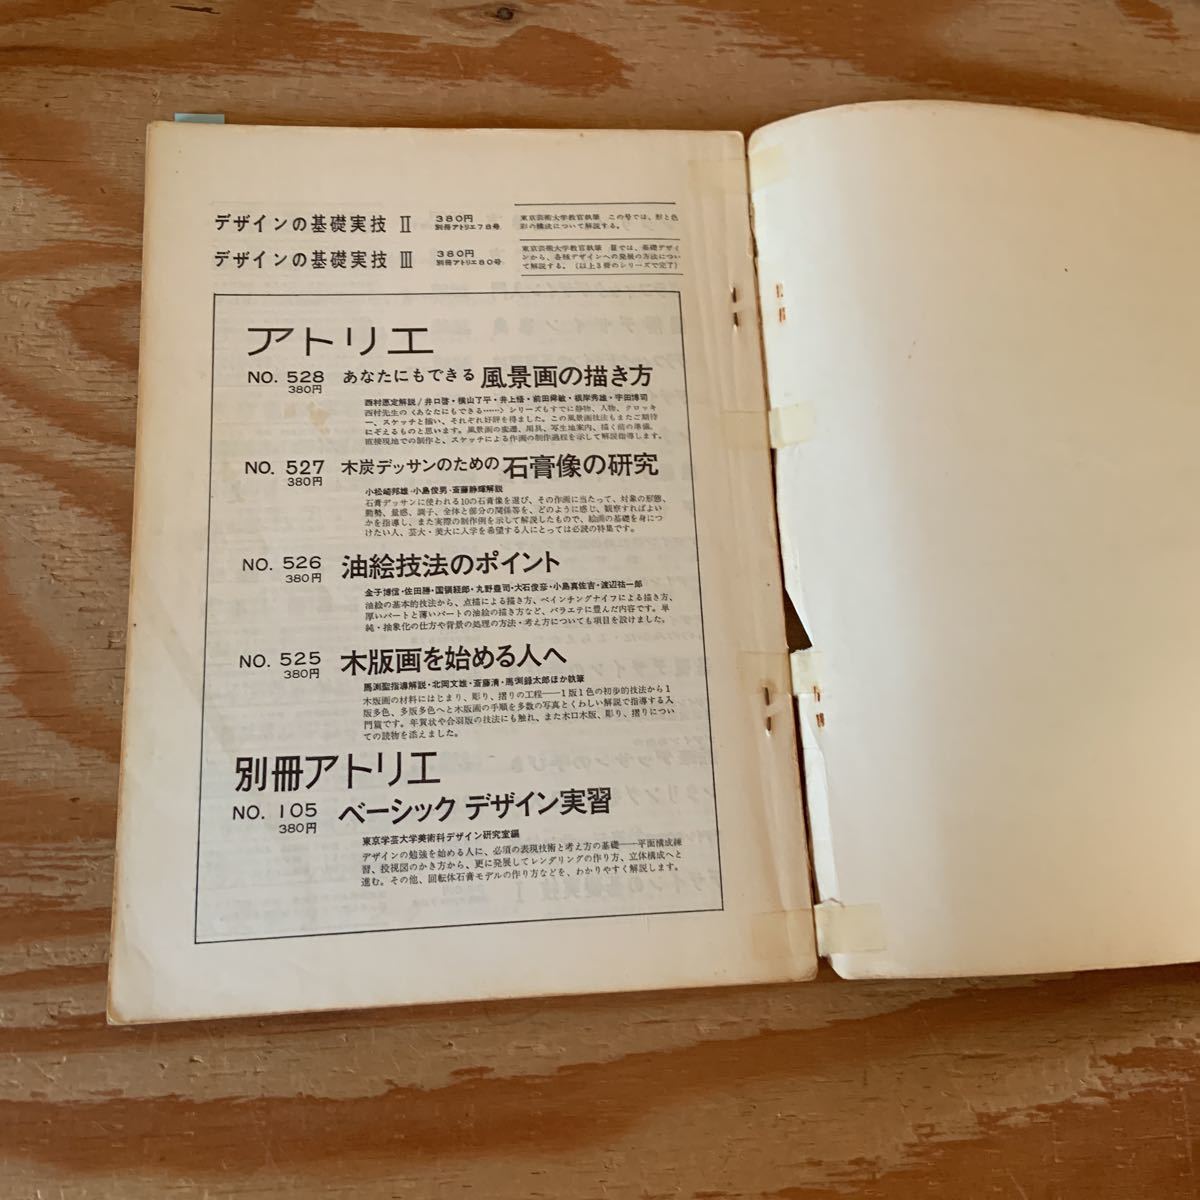 デザインの基礎実技 II 380円 別冊アトリエ78号
東京芸術大学教官執筆 この号では、形と色
彩の構成について解説する。
デザインの基礎実技 III 380円 別冊アトリエ80号
東京芸術大学教官執筆 IIIでは、基礎デザイ
ンから、各種デザインへの発展の方法につい
て解説する。(以上3冊のシリーズで完了)
アトリエ
NO. 528 あなたにもできる 風景画の描き方
380円
西村愿定解説/井口啓・横山了平・井上悟・前田舜敏・根岸秀雄・宇田博司
西村先生の〈あなたにもできる……〉シリーズもすでに静物、人物、クロッキ
ー、スケッチと描い、それぞれ好評を得ました。この風景画技法もまたご期待
にそえるものと思います。風景画の変遷、用具、写生地案内、描く前の準備、
直接現地での制作と、スケッチによる作画の制作過程を示して解説指導します。
NO. 527 木炭デッサンのための 石膏像の研究
380円
小松崎邦雄・小島俊男・斎藤静輝解説
石膏デッサンに使われる10の石膏像を選び、その作画に当たって、対象の形態、
動勢、量感、調子、全体と部分の関係等を、どのように感じ、観察すればよい
かを指導し、また実際の制作例を示して解説したもので、絵画の基礎を身につ
けたい人、芸大・美大に入学を希望する人にとっては必読の特集です。
NO. 526 油絵技法のポイント
380円
金子博信・佐田勝・国領経郎・丸野豊司・大石俊彦・小島真佐吉・渡辺祐一郎
油絵の基本的技法から、点描による描き方、ペインチングナイフによる描き方、
厚いパートと薄いパートの油絵の描き方など、バラエテに豊んだ内容です。単
純・抽象化の仕方や背景の処理の方法・考え方についても項目を設けました。
NO. 525 木版画を始める人へ
380円
馬渕聖指導解説・北岡文雄・斎藤清・馬渕録太郎ほか執筆
木版画の材料にはじまり、彫り、摺りの工程――1版1色の初歩的技法から1
版多色、多版多色へと木版画の手順を多数の写真とくわしい解説で指導する入
門篇です。年賀状や合羽版の技法にも触れ、また木口木版、彫り、摺りについ
ての読物を添えました。
別冊アトリエ
NO. 105 ベーシック デザイン実習
380円
東京学芸大学美術科デザイン研究室編
デザインの勉強を始める人に、必須の表現技術と考え方の基礎――平面構成練
習、投視図のかき方から、更に発展してレンダリングの作り方、立体構成へと
進む。その他、回転体石膏モデルの作り方などを、わかりやすく解説します。